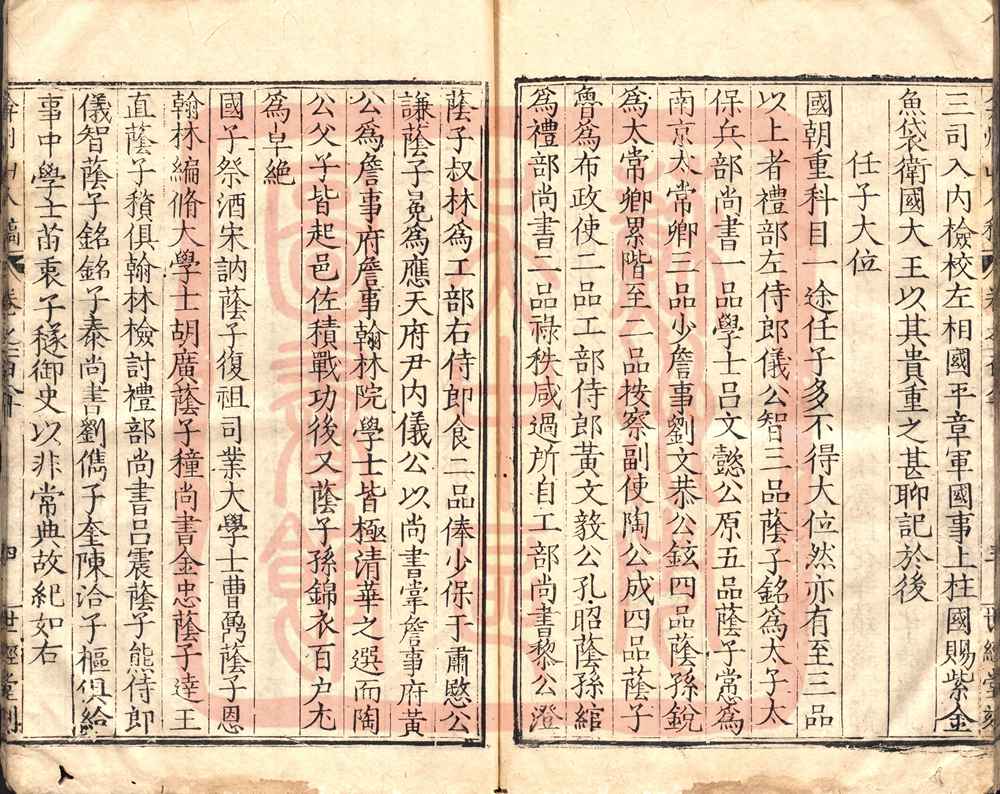 三司入內檢校左相國平章軍國事上柱國賜紫金
魚袋衛國大王以其貴重之甚聊記於後
任子大位
國朝重科目一途任子多不得大位然亦有至三品
以上者禮部左侍郎儀公智三品蔭子銘爲太子太
保兵部尚書一品學士呂文懿公原五品蔭子㦂爲
南京太常卿三品少詹事劉文恭公鉉四品蔭孫銳
爲太常卿累階至二品按察副使陶公成四品蔭子
魯爲布政使二品工部侍郎黃文毅公孔昭蔭孫綰
爲禮部尚書二品祿秩咸過所自工部尚書黎公澄
蔭子叔林爲工部右侍郎食二品俸少保于肅愍公
謙蔭子冕爲應天府尹內儀公以尚書掌詹事府黃
公爲詹事府詹事翰林院學士皆極清華之選而陶
公父子皆起邑佐積戰功後又蔭子孫錦衣百户尤
爲卓絶
國子祭酒宋訥蔭子復祖司業大學士曹鼐蔭子恩
翰林編脩大學士胡廣蔭子穜尚書金忠蔭子達王
直蔭子䆅俱翰林檢討禮部尚書呂震蔭子熊侍郎
儀智蔭子銘銘子泰尚書劉儁子奎陳洽子樞俱給
事中學士苖衷子穟御史以非常典故紀如右
弇州山人稿 卷之 四 世經堂刻
世經堂刻